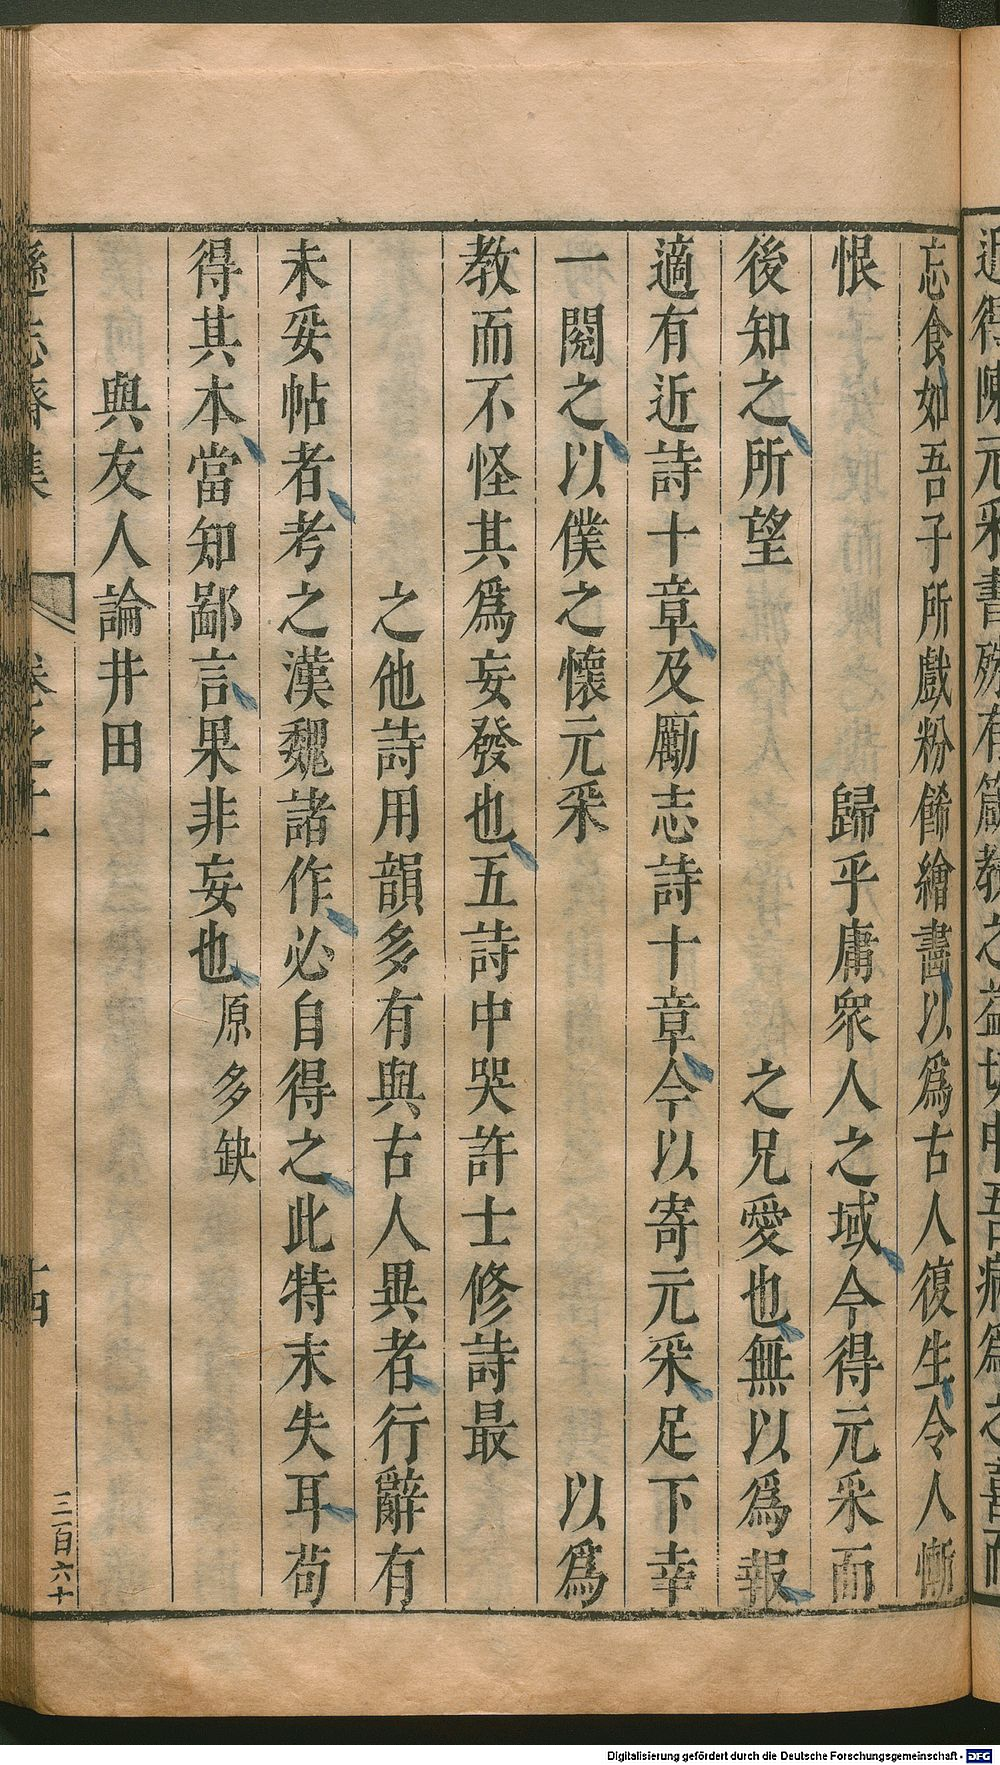 忘食如吾子所戲粉餙繪畵以爲古人復生令人慚
恨　　　　　　　歸乎庸衆人之域今得元采而
後知之所望　　　　　　　之兄愛也無以爲報
適有近詩十章及勵志詩十章今以寄元采足下幸
一閱之以僕之懷元采　　　　　　　　　以爲
教而不怪其爲妄發也五詩中哭許士修詩最
　　　　　之他詩用韻多有與古人異者行辭有
未妥帖者考之漢魏諸作必自得之此特末失耳苟
得其本當知鄙言果非妄也原多缺
　　與友人論井田
遜志齋集　卷之十一　十四
三百六十
Digitalisierung gefördert durch die Deutsche Forschungsgemeinschaft - DFG